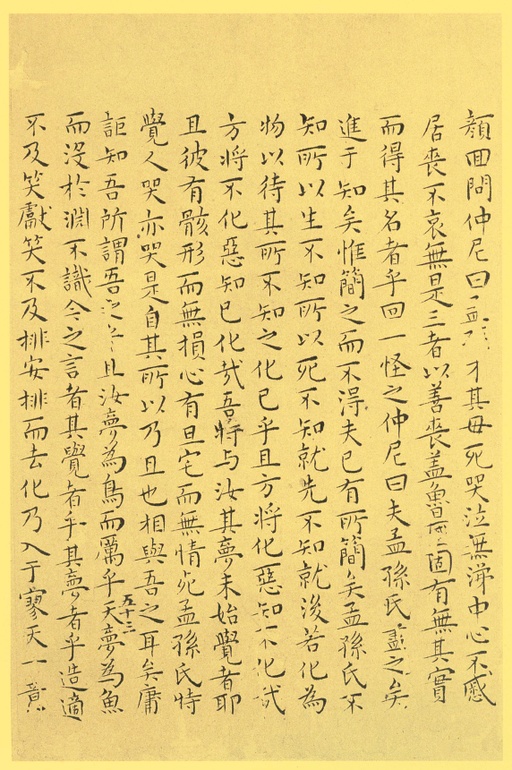 顏回問仲尼曰孟孫才其母死哭泣無涕中心不慼
居喪不哀無是三者以善喪蓋魯固有無其實
而得其名者乎回一怪之仲尼曰夫孟孫氏盡之矣
進于知矣惟簡之而不得夫已有所簡矣孟孫氏不
知所以生不知所以死不知就先不知就後若化為
物以待其所不知之化已乎且方將化惡知不化哉
方將不化惡知已化哉吾特与汝其夢未始覺者耶
且彼有骸形而無損心有旦宅而無情死孟孫氏特
覺人哭亦哭是自其所以乃且也相與吾之耳矣庸
詎知吾所謂吾之乎且汝夢為鳥而厲乎天夢為魚
五十三
而沒於淵不識今之言者其覺者乎其夢者乎造適
不及笑獻笑不及排安排而去化乃入于寥天一意